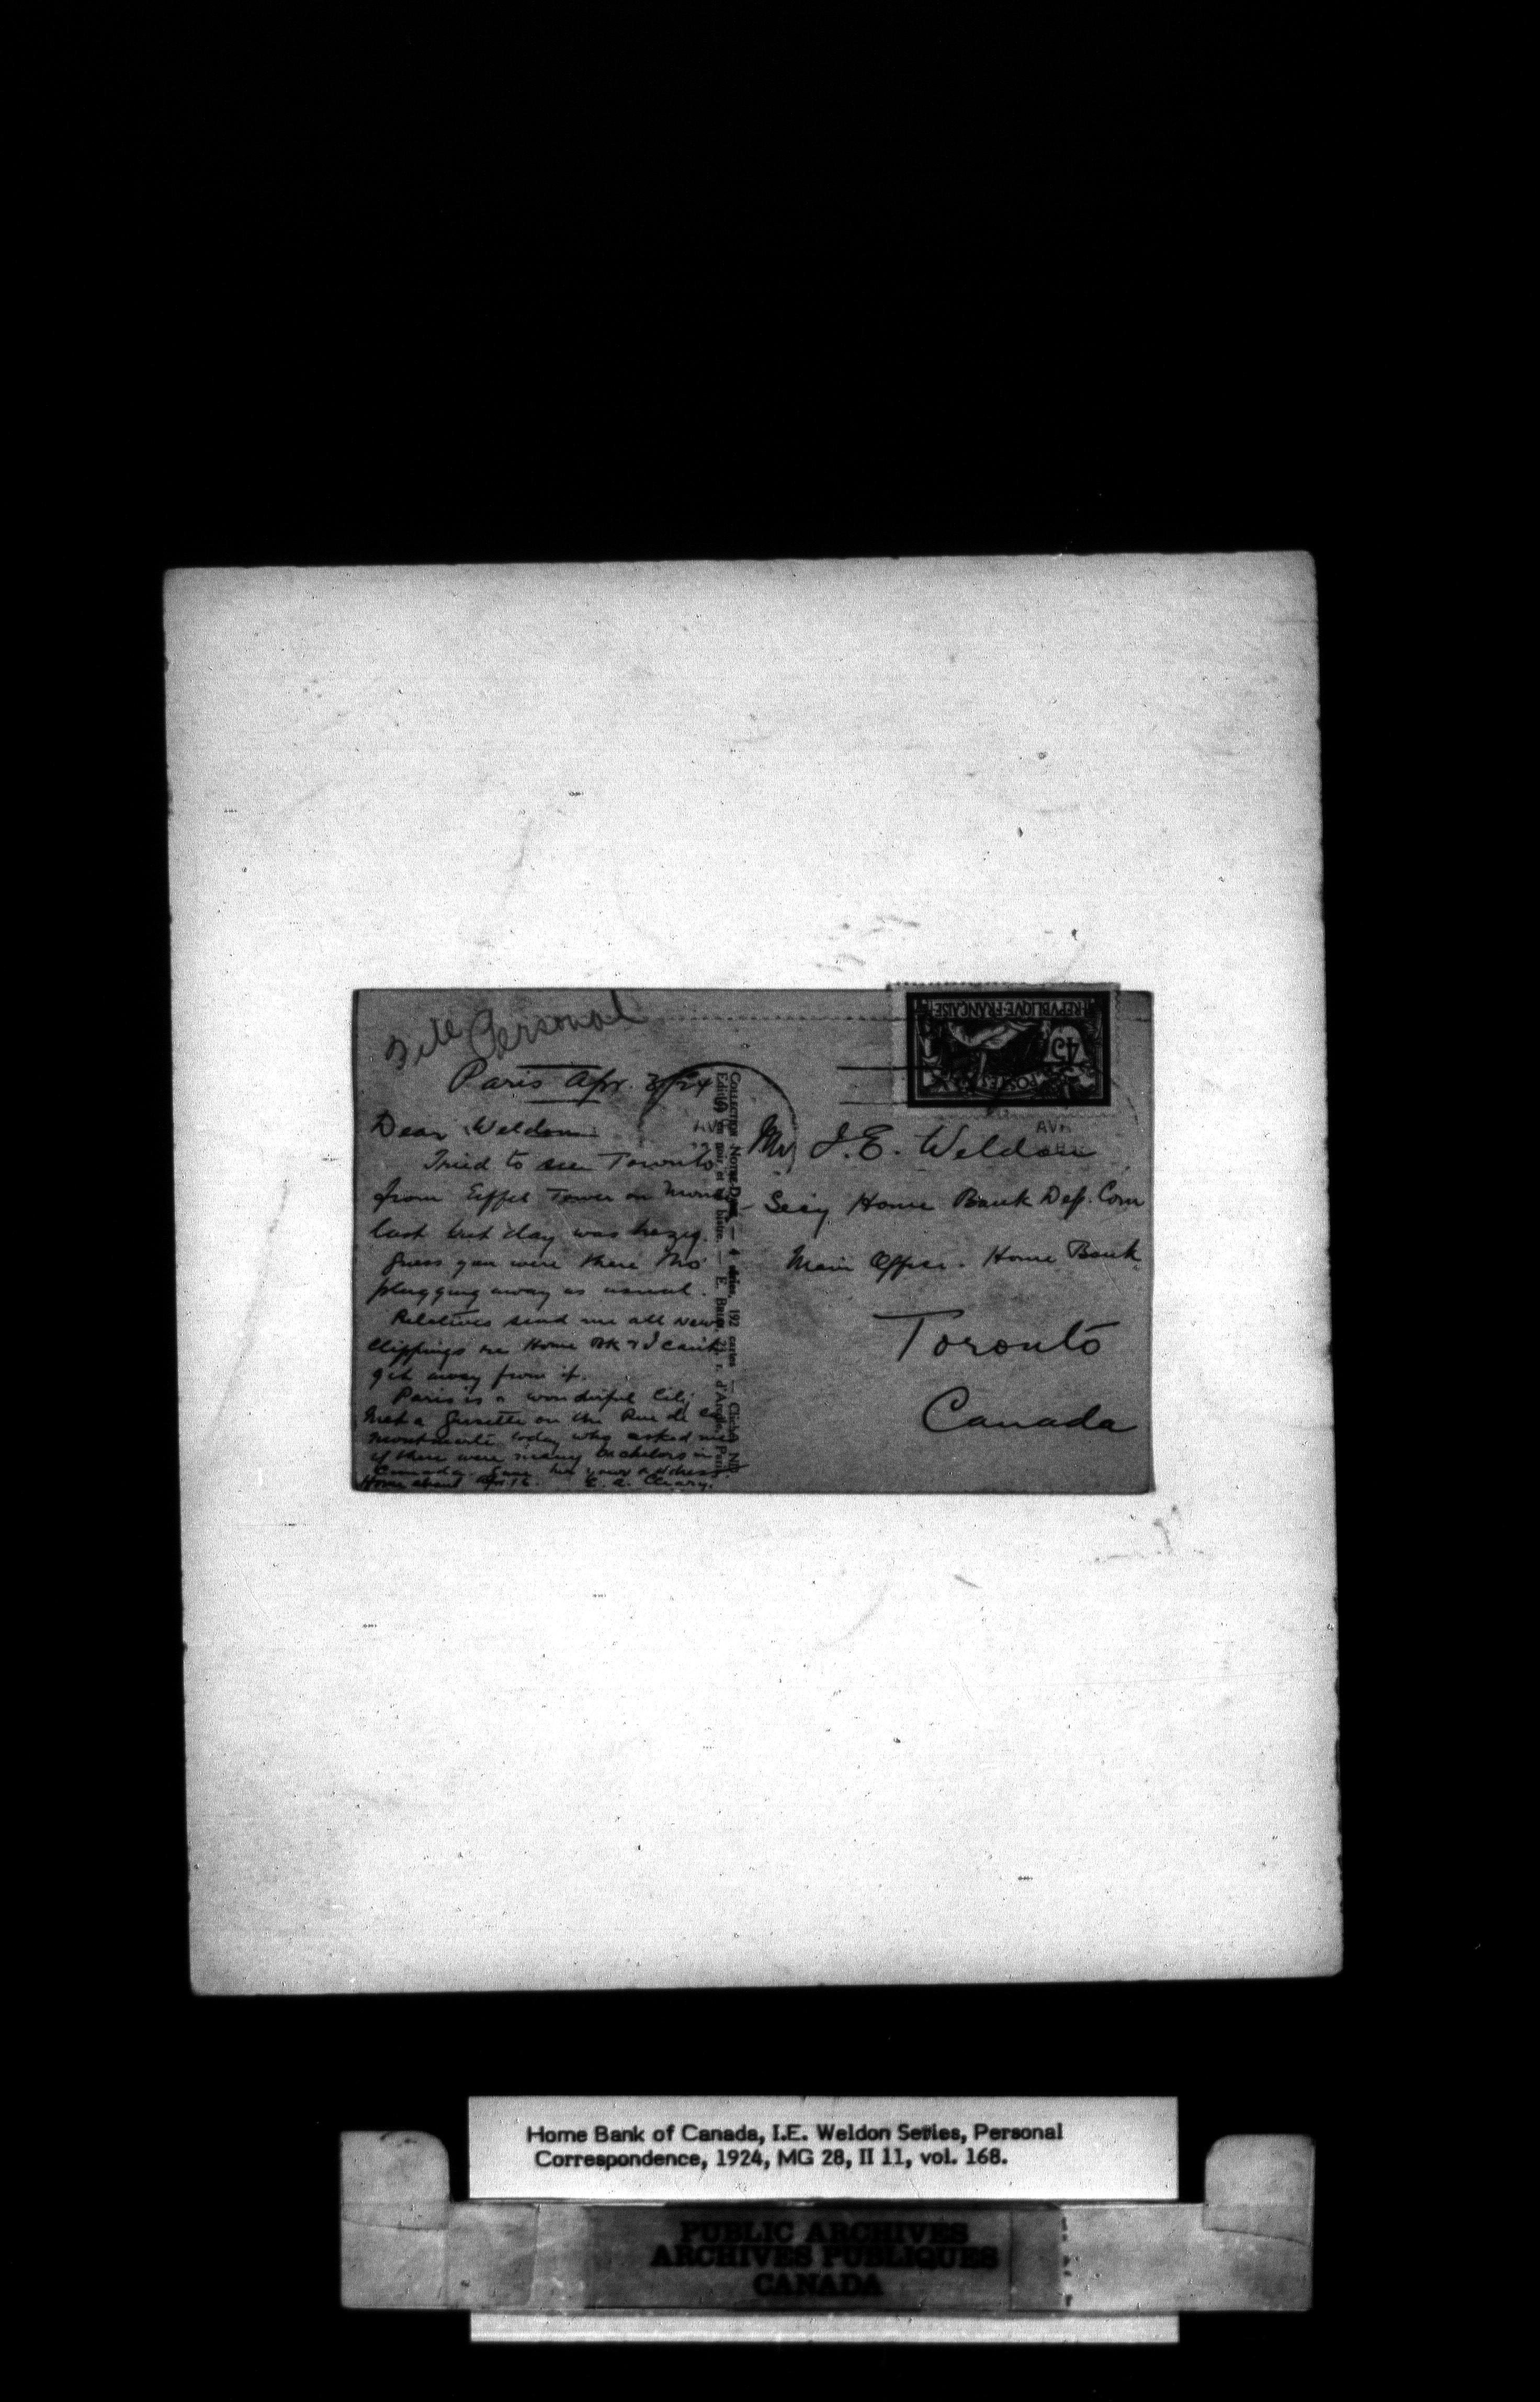 File Personal
Paris Apr. 3/24
Dear Weldon:
Tried to see Toronto
from Eiffel Tower on Monday
last but day was hazy.
Guess you were there tho'
plugging away as usual.
Relatives send me all news
clippings re Home Bk & I can't
get away from it.
Paris is a wonderful City
Met a Grisette on the Rue de
Montmartre today who asked me
if there were many bachelors in
Canada. Gave her your address.
Home about Apr. 16. E. A. Cleary.
COLLECTION NOTRE-DAME — 4 séries, 192 cartes — Clichés ND
Edit. noir et bistre. — E. r. d'Paris
REPVBLIQVE FRANÇAISE
45
POSTES
AVR
AVR
Mr I. E. Weldon
Secy Home Bank Dep. Com
Main Office. Home Bank
Toronto
Canada
Home Bank of Canada, I.E. Weldon Series, Personal
Correspondence, 1924, MG 28, II 11, vol. 168.
PUBLIC ARCHIVES
ARCHIVES PUBLIQUES
CANADA